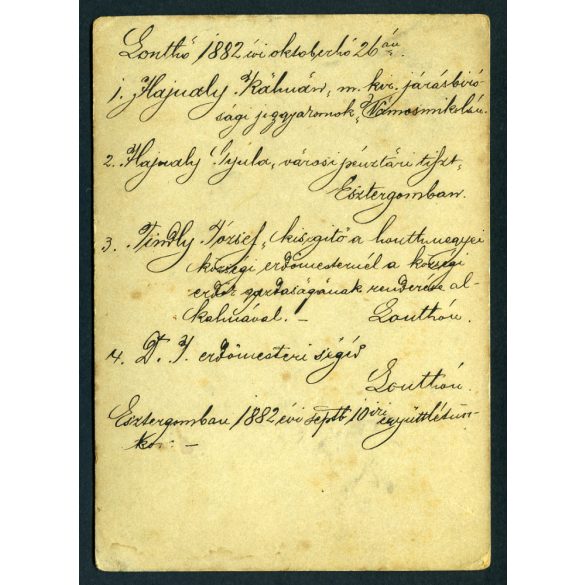 Lonthó 1882 évi oktoberhó 26án.
1. Hajualy Kálmán, m. kir. járásbiró-
sági jeggyaromok, Vámosmikolán.
2. Hajualy Gyula, városi pénztári tiszt,
Esztergomban.
3. Tindly József, kisegitő a honthmegyei
községi erdőmesternél a községi
erdők gazdaságának rendezése al-
kalmával. — Lonthón.
4. D. J. erdőmesteri segéd
Lonthón.
Esztergomban 1882 évi septb 10iki együttlétün-
kor. —